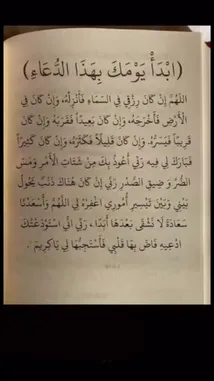 (ابْدَأْ يَوْمَكَ بِهَذَا الدُّعَاءِ)
اللهُمَّ إِنْ كَانَ رِزْقِي فِي السَّمَاءِ فَأَنْزِلْهُ، وَإِنْ كَانَ فِي
الْأَرْضِ فَأَخْرِجْهُ، وَإِنْ كَانَ بَعِيدًا فَقَرِّبْهُ وَإِنْ كَانَ
قَرِيبًا فَيَسِّرْهُ، وَإِنْ كَانَ قَلِيلًا فَكَثِّرْهُ وَإِنْ كَانَ كَثِيرًا
فَبَارِكْ لِي فِيهِ رَبِّي أَعُوذُ بِكَ مِنْ شَتَاتِ الْأَمْرِ وَمَسِّ
الضُّرِّ وَضِيقِ الصَّدْرِ رَبِّي إِنْ كَانَ هُنَاكَ ذَنْبٌ يَحُولُ
بَيْنِي وَبَيْنَ تَيْسِيرِ أُمُورِي اغْفِرْهُ لِي اللهُمَّ وَأَسْعِدْنَا
سَعَادَةً لَا نَشْقَى بَعْدَهَا أَبَدًا، رَبِّي إِنِّي اسْتَوْدَعْتُكَ
ادْعِيهِ فَاضَ بِهَا قَلْبِي فَاسْتَجِبْهَا لِي يَاكَرِيمُ.